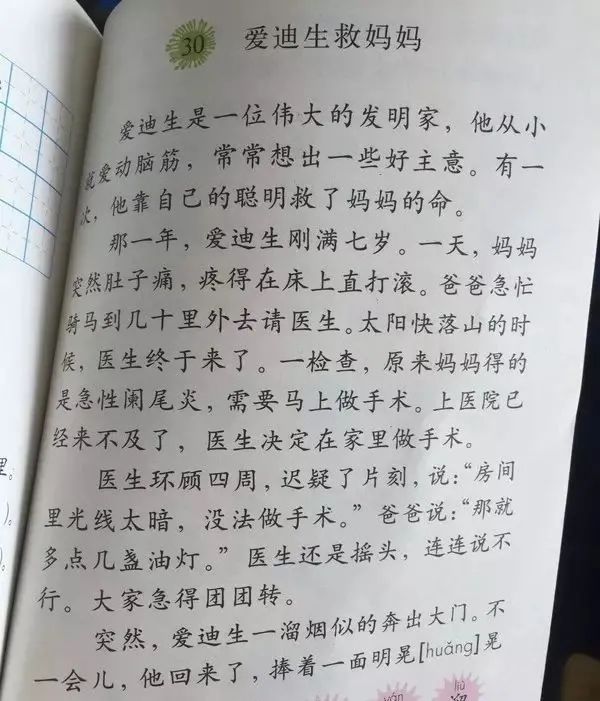 30 爱迪生救妈妈
爱迪生是一位伟大的发明家，他从小
就爱动脑筋，常常想出一些好主意。有一
次，他靠自己的聪明救了妈妈的命。
那一年，爱迪生刚满七岁。一天，妈妈
突然肚子痛，疼得在床上直打滚。爸爸急忙
骑马到几十里外去请医生。太阳快落山的时
候，医生终于来了。一检查，原来妈妈得的
是急性阑尾炎，需要马上做手术。上医院已
经来不及了，医生决定在家里做手术。
医生环顾四周，迟疑了片刻，说：“房间
里光线太暗，没法做手术。”爸爸说：“那就
多点几盏油灯。”医生还是摇头，连连说不
行。大家急得团团转。
突然，爱迪生一溜烟似的奔出大门。不
一会儿，他回来了，捧着一面明晃[huǎng]晃
里。
)。
)。
liū
溜